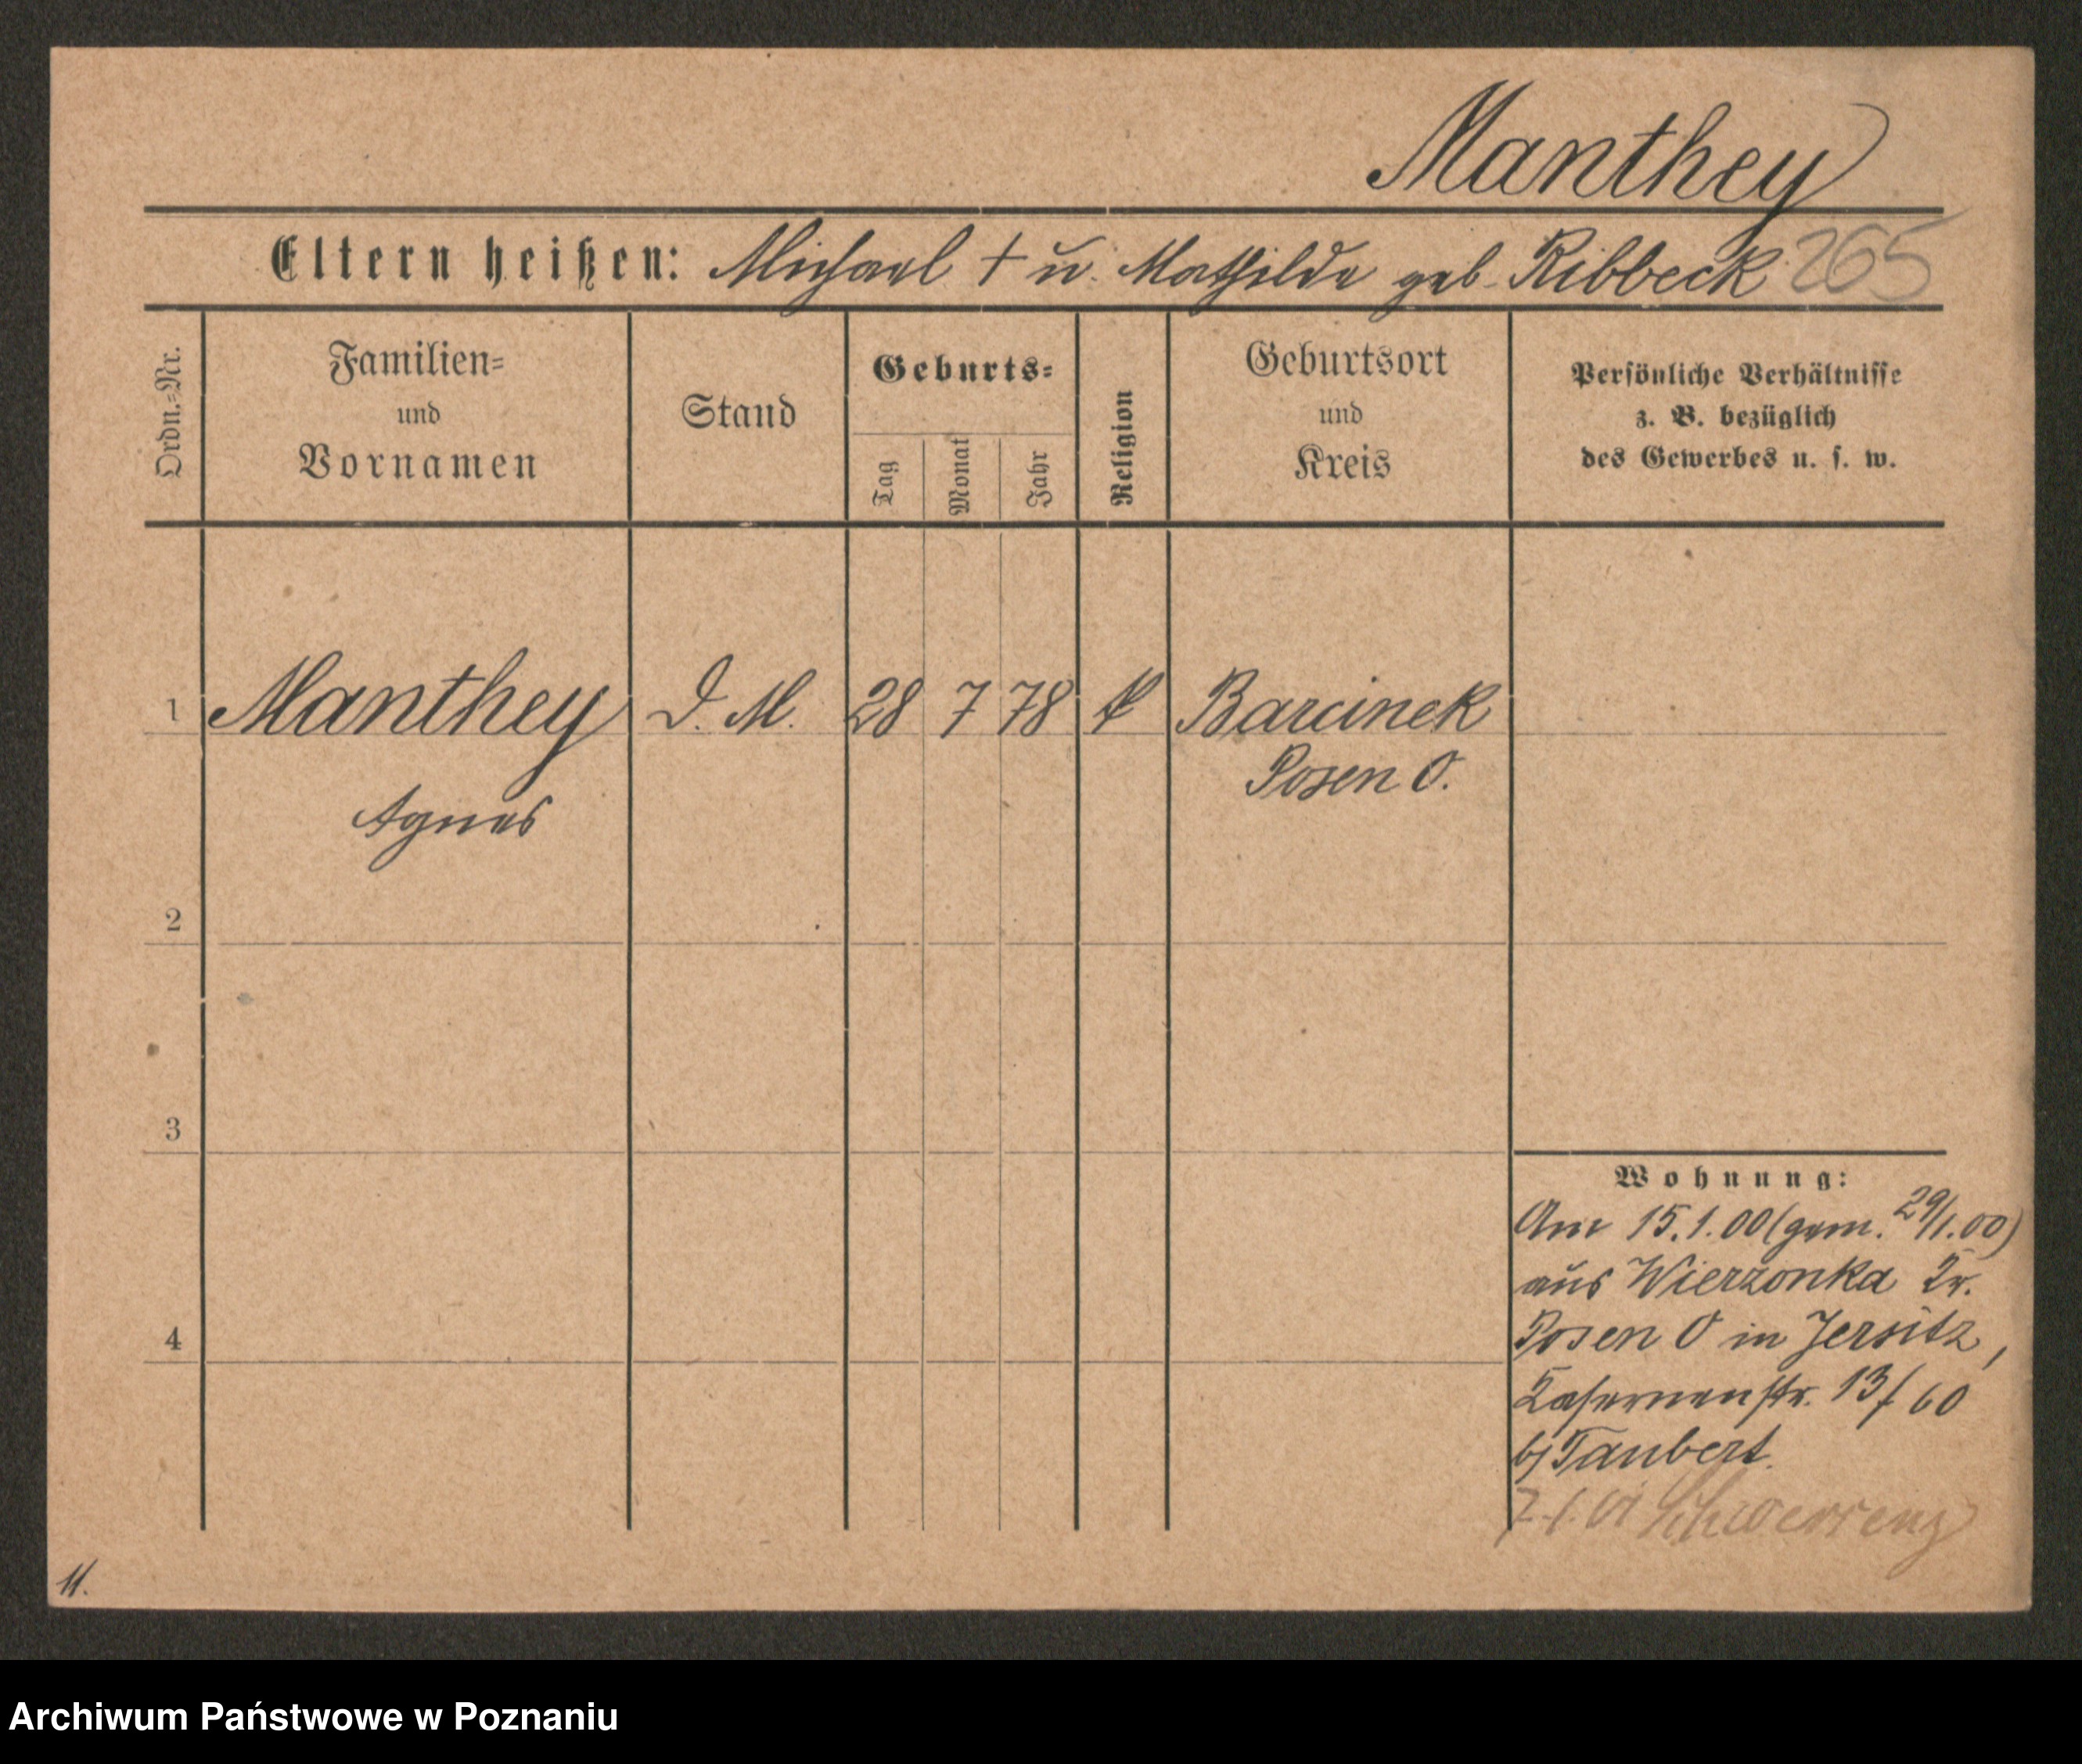 Manthey
Eltern heißen: Michael † u. Mathilde geb. Ribbeck 265
Ordn.-Nr.
Familien-
und
Vornamen
Stand
Geburts-
Tag
Monat
Jahr
Religion
Geburtsort
und
Kreis
Persönliche Verhältnisse
z. B. bezüglich
des Gewerbes u. s. w.
1 Manthey D. M. 28 7 78 k Barcinek
Posen O.
Agnes
2
3
4
Wohnung:
Am 15.1.00 (gem. 29/1.00)
aus Wierzonka Kr.
Posen O in Jersitz,
Kasernenstr. 13/60
b/Taubert.
Schwersenz
11.
Archiwum Państwowe w Poznaniu